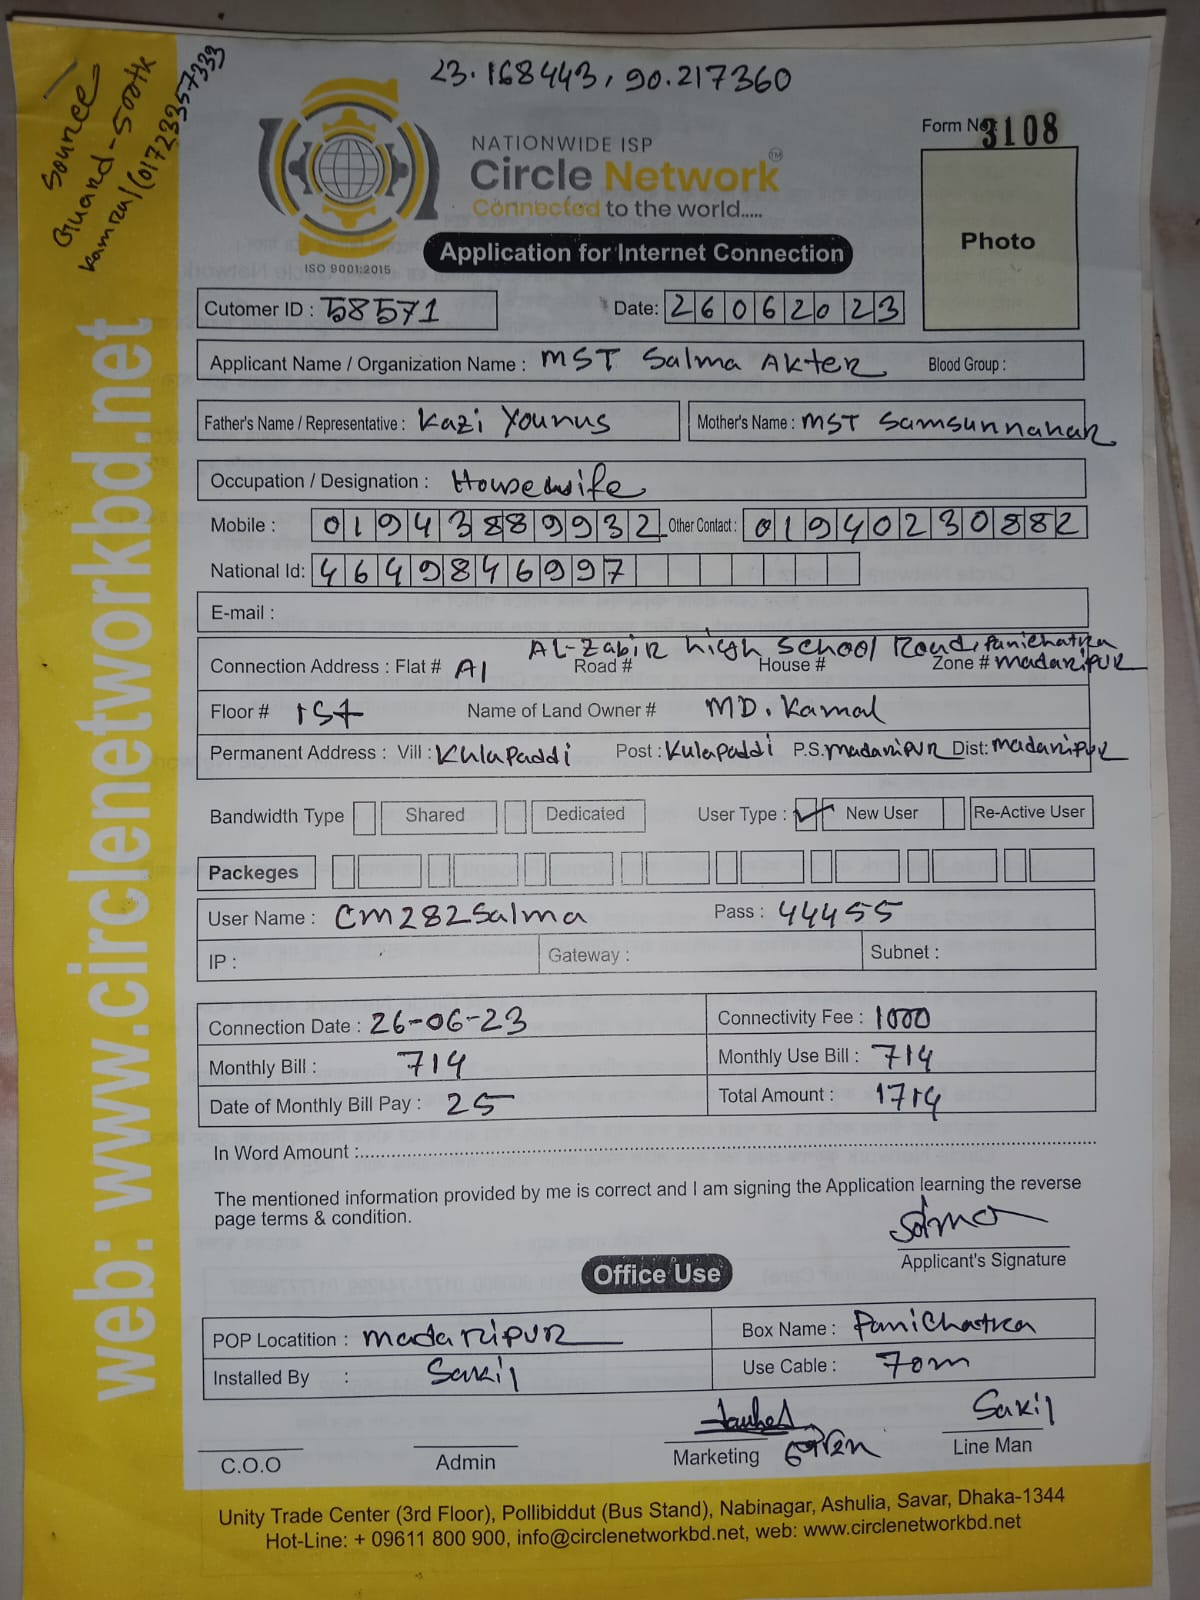 23.168443, 90.217360
Source
Guard-500tk
Kamrul (01723357333
NATIONWIDE ISP
Circle Network TM
Connected to the world.....
ISO 9001:2015
Application for Internet Connection
Form No 3108
Photo
Cutomer ID : 58571 Date: 26062023
Applicant Name / Organization Name : MST Salma Akter Blood Group :
Father's Name / Representative : Kazi Younus Mother's Name : MST Samsunnahar
Occupation / Designation : Housewife
Mobile : 01943889932 Other Contact : 01940230882
National Id: 4649846997
E-mail :
AL-Zabir high School Road, Panichatra
Connection Address : Flat # A1 Road # House # Zone # madaripur
Floor # 1st Name of Land Owner # MD. Kamal
Permanent Address : Vill : Kulapaddi Post : Kulapaddi P.S. madaripur Dist: madaripur
Bandwidth Type Shared Dedicated User Type : New User Re-Active User
Packeges
User Name : CM282Salma Pass : 44455
IP : Gateway : Subnet :
Connection Date : 26-06-23 Connectivity Fee : 1000
Monthly Bill : 714 Monthly Use Bill : 714
Date of Monthly Bill Pay : 25 Total Amount : 1714
In Word Amount :
The mentioned information provided by me is correct and I am signing the Application learning the reverse
page terms & condition.
Salma
Applicant's Signature
Office Use
POP Locatition : madaripur Box Name : Panichatra
Installed By : Sakil Use Cable : 70m
Sakil
C.O.O Admin Marketing Line Man
Unity Trade Center (3rd Floor), Pollibiddut (Bus Stand), Nabinagar, Ashulia, Savar, Dhaka-1344
Hot-Line: + 09611 800 900, info@circlenetworkbd.net, web: www.circlenetworkbd.net
web: www.circlenetworkbd.net